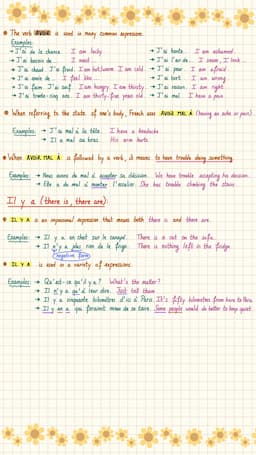 The verb AVOIR is used in many common expressions.
Examples:
→ J'ai de la chance I am lucky → J'ai honte... I am ashamed
→ J'ai besoin de... I need... → J'ai l'air de... I seem, I look...
→ J'ai chaud. J'ai froid. I am hot/warm. I am cold → J'ai peur I am afraid
→ J'ai envie de... I feel like... → J'ai tort. I am wrong
→ J'ai faim. J'ai soif. I am hungry. I am thirsty → J'ai raison I am right
→ J'ai trente-cinq ans I am thirty-five years old → J'ai mal I have a pain
When referring to the state of one's body, French uses AVOIR MAL À (having an ache or pain).
Examples: → J'ai mal à la tête. I have a headache
→ Il a mal au bras. His arm hurts.
When AVOIR MAL À is followed by a verb, it means to have trouble doing something.
Examples: → Nous avons du mal à accepter sa décision. We have trouble accepting his decision.
→ Elle a du mal à monter l'escalier. She has trouble climbing the stairs
Il y a (there is, there are):
IL Y A is an impersonal expression that means both there is and there are.
Examples: → Il y a un chat sur le canapé. There is a cat on the sofa.
→ Il n'y a plus rien dans le frigo. There is nothing left in the fridge
negative form
IL Y A is used in a variety of expressions.
Examples: → Qu'est-ce qu'il y a? What's the matter?
→ Il n'y a qu'à leur dire. Just tell them
→ Il y a cinquante kilomètres d'ici à Paris. It's fifty kilometres from here to Paris
→ Il y en a qui feraient mieux de se taire. Some people would do better to keep quiet